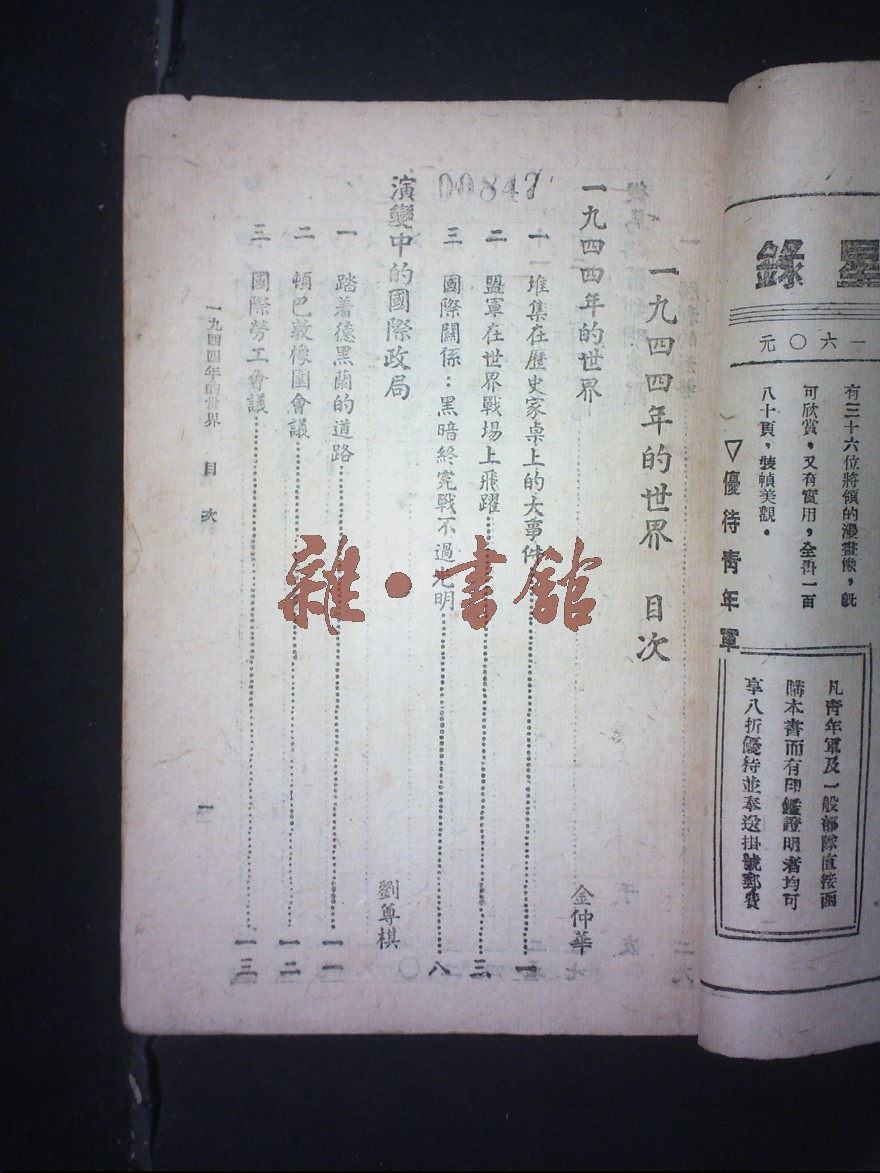 錄星
一六〇元
有三十六位將領的漫畫像，既
可欣賞，又有實用，全書一百
八十頁，裝幀美觀。
▽優待青年軍
凡青年軍及一般部隊直接函
購本書而有印鑑證明者均可
享八折優待並奉送掛號郵費
一九四四年的世界 目次
00847
一九四四年的世界 金仲華
一 堆集在歷史家桌上的大事件 一
二 盟軍在世界戰場上飛躍 三
三 國際關係：黑暗終究戰不過光明 八
演變中的國際政局 劉尊棋
一 踏着德黑蘭的道路 一一
二 頓巴敦橡園會議 一二
三 國際勞工會議 一三
一九四四年的世界 目次 一
雜·書館